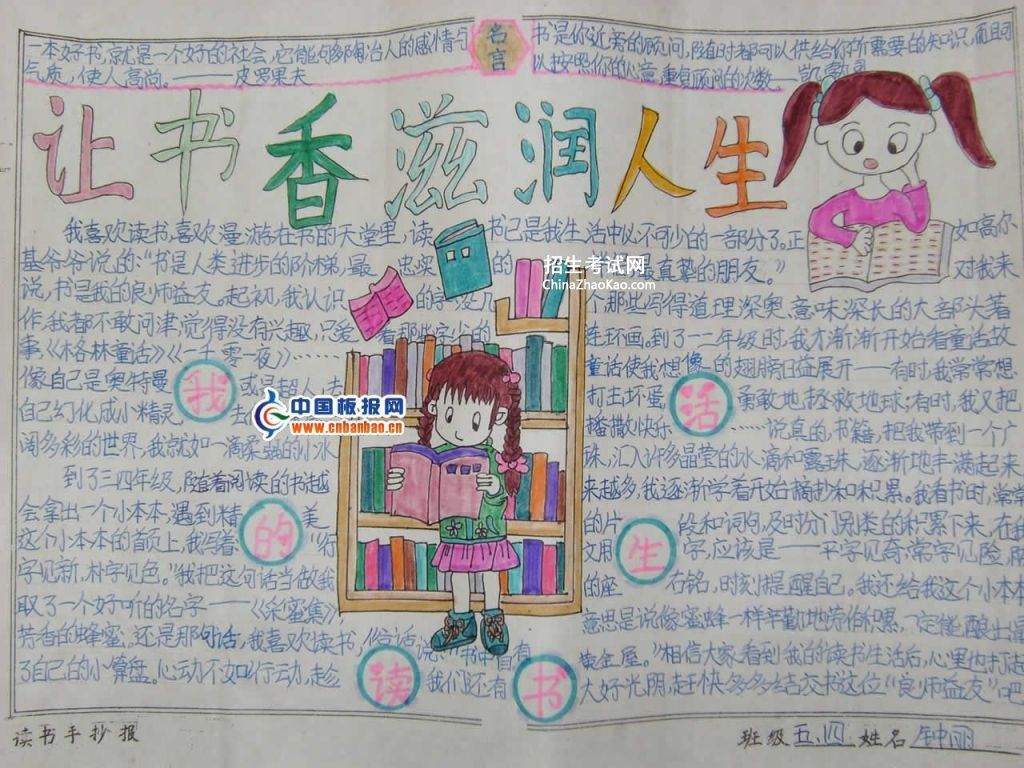 一本好书,就是一个好的社会,它能够陶冶人的感情与
气质,使人高尚。——皮罗果夫
名言
书是你近旁的顾问,随时都可以供给你所需要的知识,而且可
以按照你的心意,重复顾问的次数——凯勒
让书香滋润人生
我喜欢读书,喜欢漫游在书的天堂里,读 书已是我生活中必不可少的一部分了。正 如高尔
基爷爷说的:“书是人类进步的阶梯,最 忠实 的 最真挚的朋友。” 对我来
说,书是我的良师益友。起初,我认识 的字没几 个,那些写得道理深奥、意味深长的大部头著
作,我都不敢问津,觉得没有兴趣,只爱 看那些字少的 连环画。到了一二年级时,我才渐渐开始看童话故
事。《格林童话》《一千零一夜》…… 童话使我想像的翅膀日益展开——有时,我常常想
像自己是奥特曼 或 超人,去 打王坏蛋, 勇敢地,拯救地球;有时,我又把
自己幻化成小精灵, 去 播撒快乐 ……说真的,书籍,把我带到一个广
阔多彩的世界,我就如一滴柔弱的小水 珠,汇入许多晶莹的水滴和露珠,逐渐地丰满起来
到了三四年级,随着阅读的书越 来越多,我逐渐学着开始摘抄和积累。我看书时,常常
会拿出一个小本本,遇到精 美 的片 段和词句,及时分门别类的积累下来,在我
这个小本本的首页上,我写着 “ 文用 字,应该是——平字见奇,常字见险,陈
字见新,朴字见色。”我把这句话当做我 的座 右铭,时刻提醒自己。我还给我这个小本本
取了一个好听的名字——《采蜜集》 意思是说像蜜蜂一样辛勤地劳作积累,一定能酿出最
芳香的蜂蜜。还是那句话,我喜欢读书,俗话说“书中自有 黄金屋。”相信大家看到我的读书生活后,心里也打起
了自己的小算盘。心动不如行动,趁 我们还有 大好光阴,赶快多多结交书这位“良师益友”吧
我
的
读
书
生
活
招生考试网
ChinaZhaoKao.com
中国板报网
www.cnbanbao.cn
读书手抄报
班级 五、四 姓名 钟丽